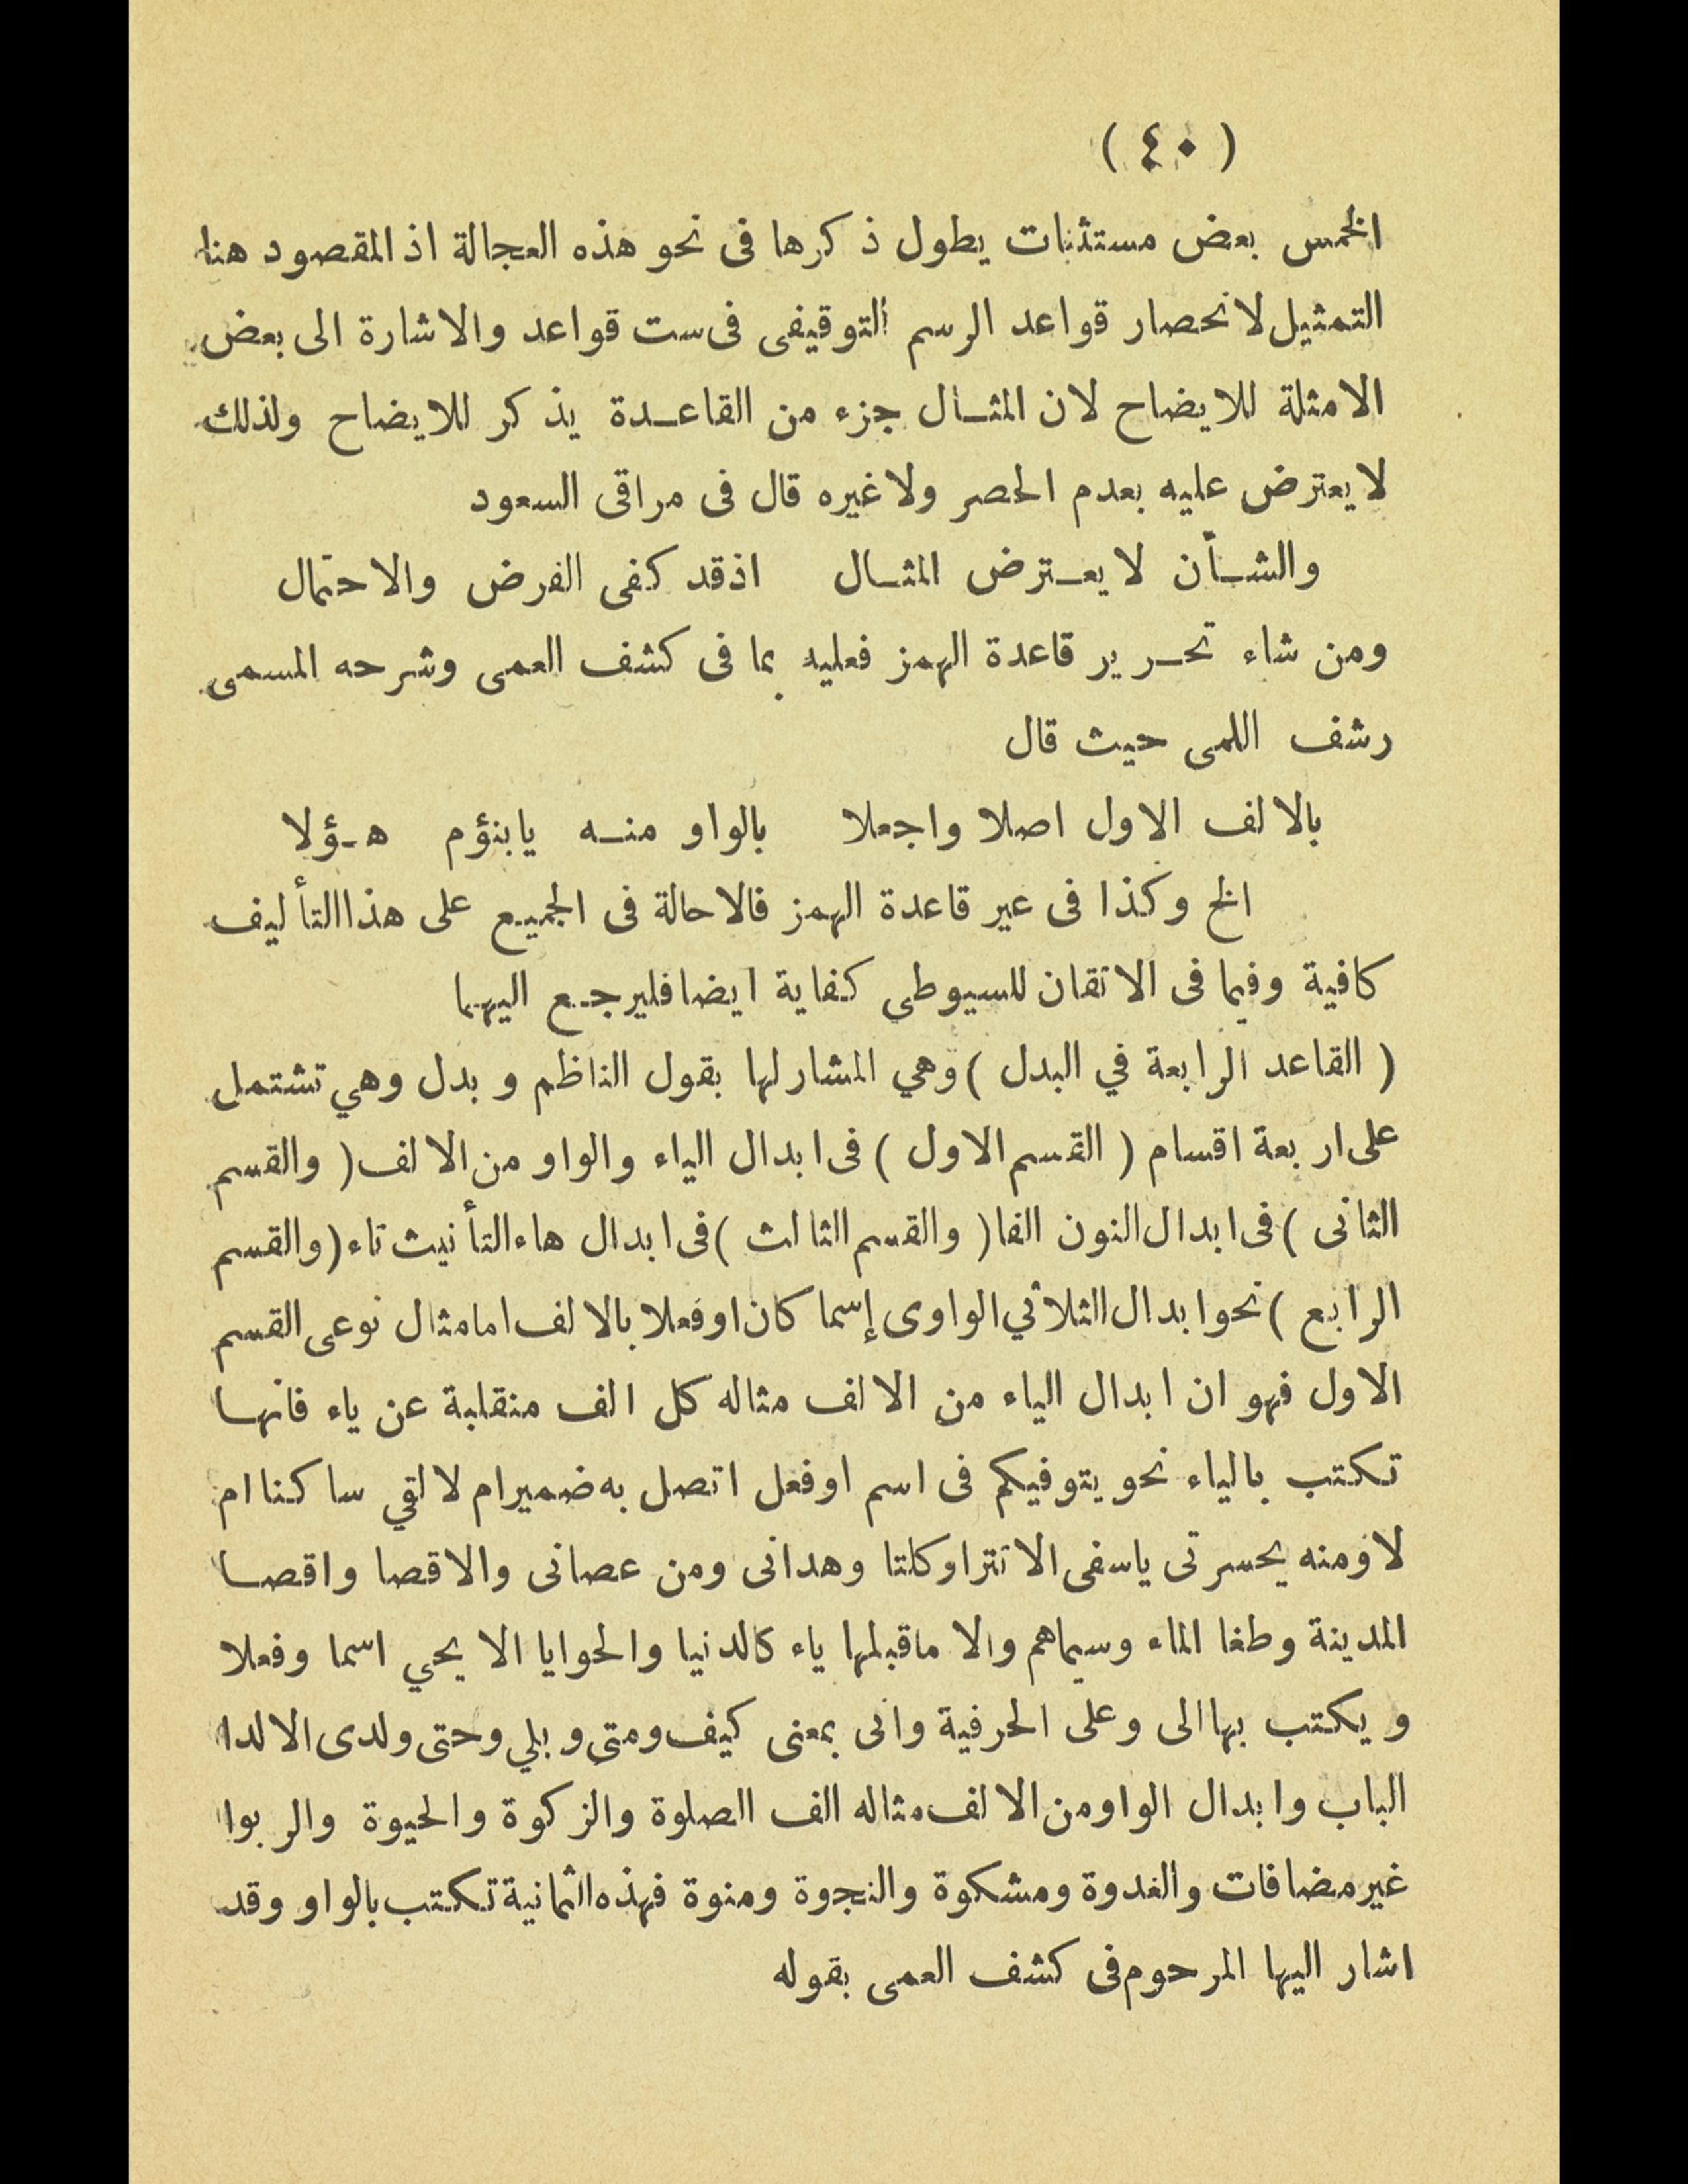 ( ٤٠ )
الخمس بعض مستثنات يطول ذكرها فى نحو هذه العجالة اذ المقصود هنا
التمثيل لانحصار قواعد الرسم التوقيفى فى ست قواعد والاشارة الى بعض
الامثلة للايضاح لان المثـال جزء من القاعـدة يذكر للايضاح ولذلك
لا يعترض عليه بعدم الحصر ولا غيره قال فى مراقى السعود
والشـأن لا يعـترض المثـال اذ قد كفى الفرض والاحتمال
ومن شاء تحـرير قاعدة الهمز فعليه بما فى كشف العمى وشرحه المسمى
رشف اللمى حيث قال
بالالف الاول اصلا واجعلا بالواو منـه يابنؤم هـؤلا
الخ وكذا فى عير قاعدة الهمز فالاحالة فى الجميع على هذا التأليف
كافية وفيما فى الاتقان للسيوطى كفاية ايضا فليرجـع اليهما
( القاعد الرابعة في البدل ) وهي المشار لها بقول الناظم و بدل وهي تشتمل
على اربعة اقسام ( القسم الاول ) فى ابدال الياء والواو من الالف ( والقسم
الثانى ) فى ابدال النون الفا ( والقسم الثالث ) فى ابدال هاء التأنيث تاء ( والقسم
الرابع ) نحو ابدال الثلاثي الواوى إسما كان او فعلا بالالف اما مثال نوعى القسم
الاول فهو ان ابدال الياء من الالف مثاله كل الف منقلبة عن ياء فانهـا
تكتب بالياء نحو يتوفيكم فى اسم او فعل اتصل به ضمير ام لا لقي ساكنا ام
لا ومنه يحسرتى ياسفى الا تترا وكلتا وهدانى ومن عصانى والاقصا واقصـا
المدينة وطغا الماء وسيماهم والا ما قبلها ياء كالدنيا والحوايا الا يحي اسما وفعلا
و يكتب بها الى وعلى الحرفية وانى بمعنى كيف ومتى و بلي وحتى ولدى الا لدا
الباب وابدال الواو من الالف مثاله الف الصلوة والزكوة والحيوة والربوا
غير مضافات والغدوة ومشكوة والنجوة ومنوة فهذه الثمانية تكتب بالواو وقد
اشار اليها المرحوم فى كشف العمى بقوله